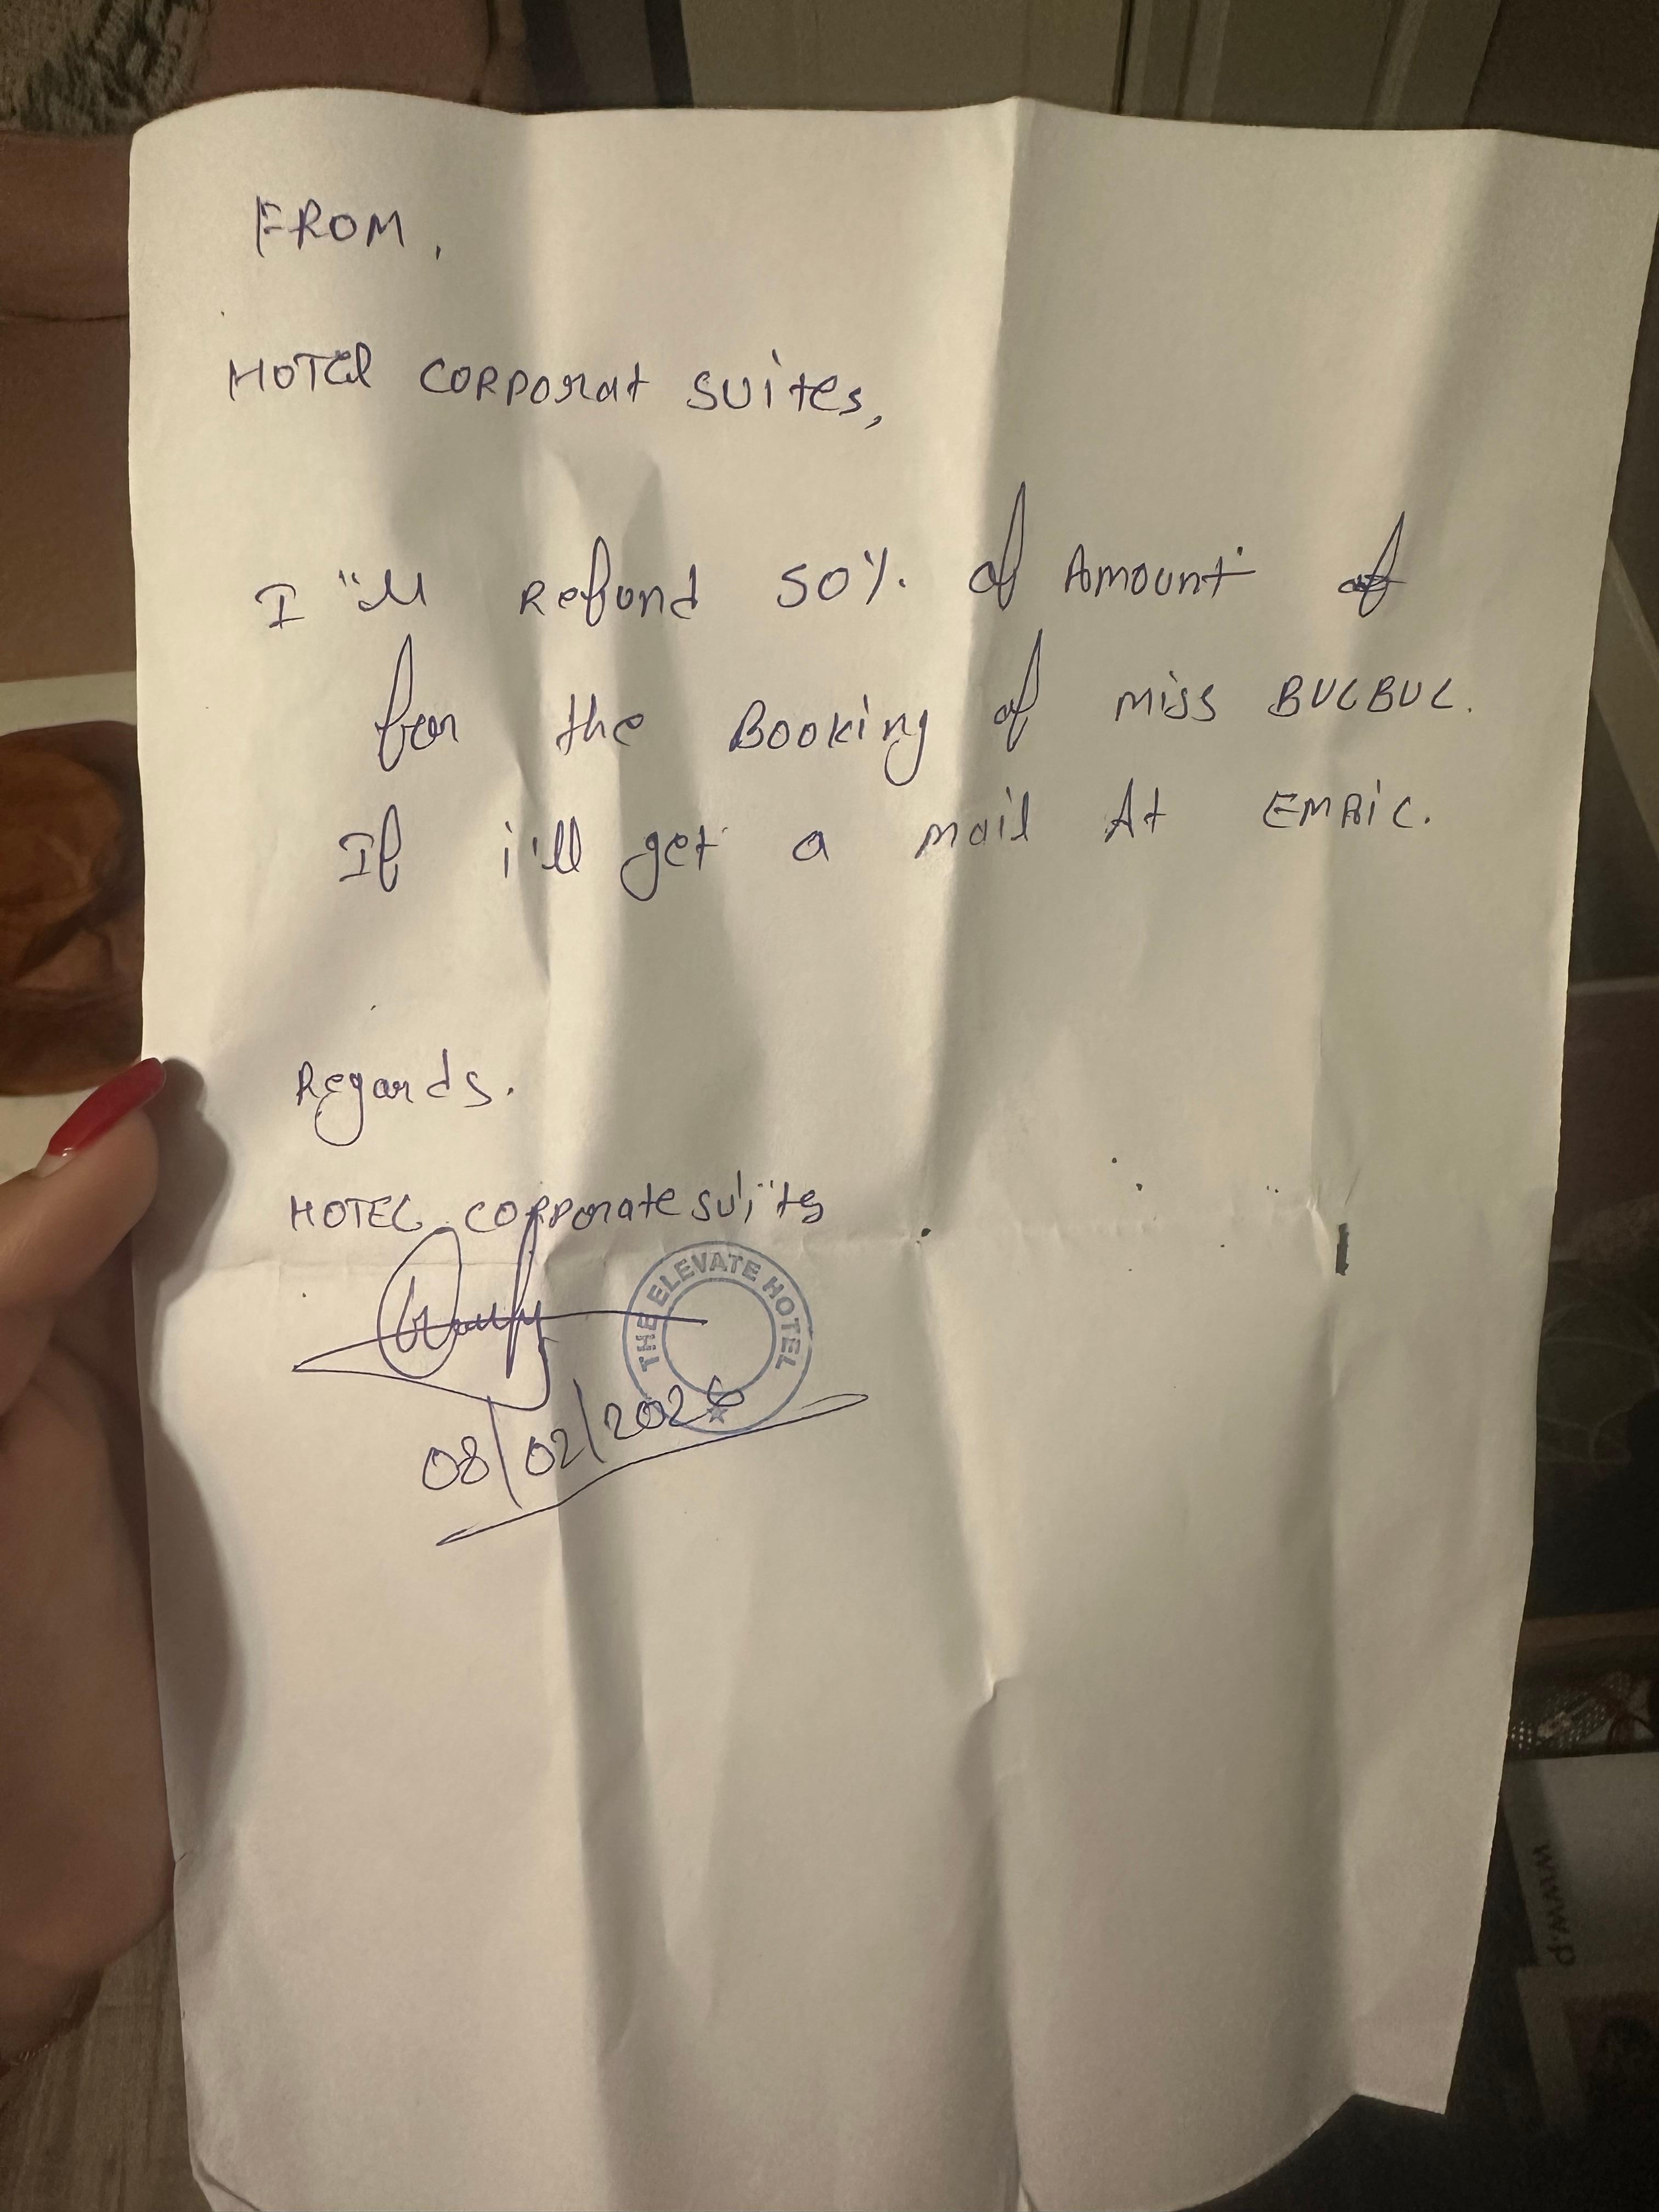 FROM,
HOTEl CORPORat suites,
I "ll Refund 50%. of Amount of
for the Booking of miss BULBUL.
If i'll get a mail At EMAIL.
Regards.
HOTEL corporate suites
THE ELEVATE HOTEL
08/02/2026
www.p